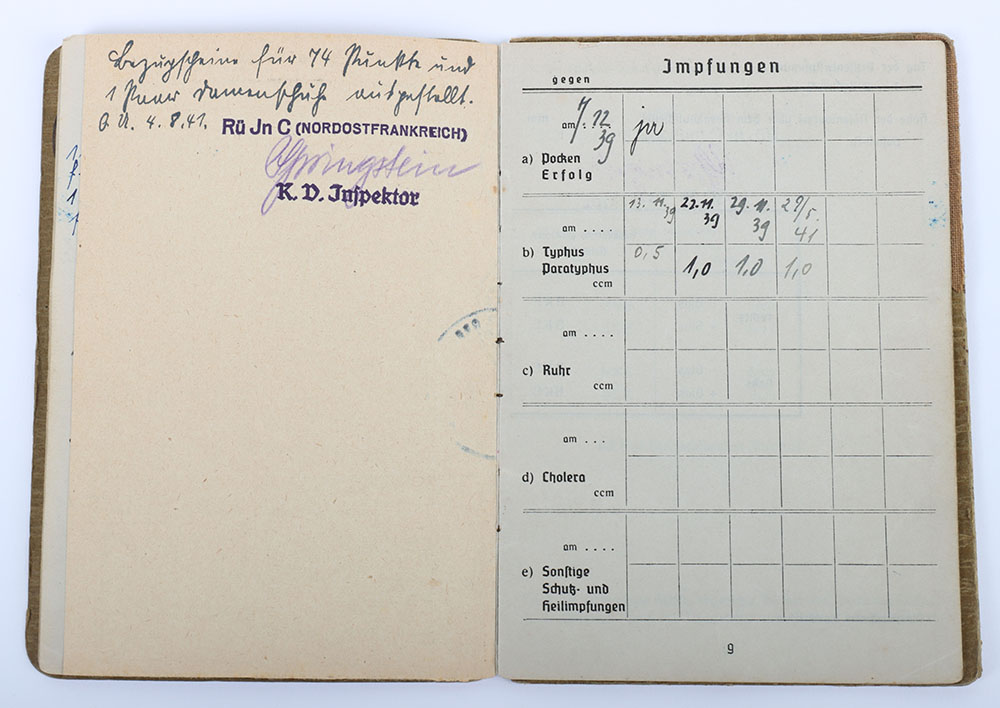 Bezugscheine für 74 Punkte und
1 Paar Damenschuhe ausgestellt.
O.U. 4.8.41.
Rü Jn C (NORDOSTFRANKREICH)
K. V. Inspektor
Impfungen
gegen
am 12 39
a) Pocken
Erfolg
am .... 13. 11. 39 22. 11. 39 29. 11. 39 29/5. 41
b) Typhus
Paratyphus
ccm 0,5 1,0 1,0 1,0
am ....
c) Ruhr
ccm
am ...
d) Cholera
ccm
am ....
e) Sonstige
Schutz- und
Heilimpfungen
9